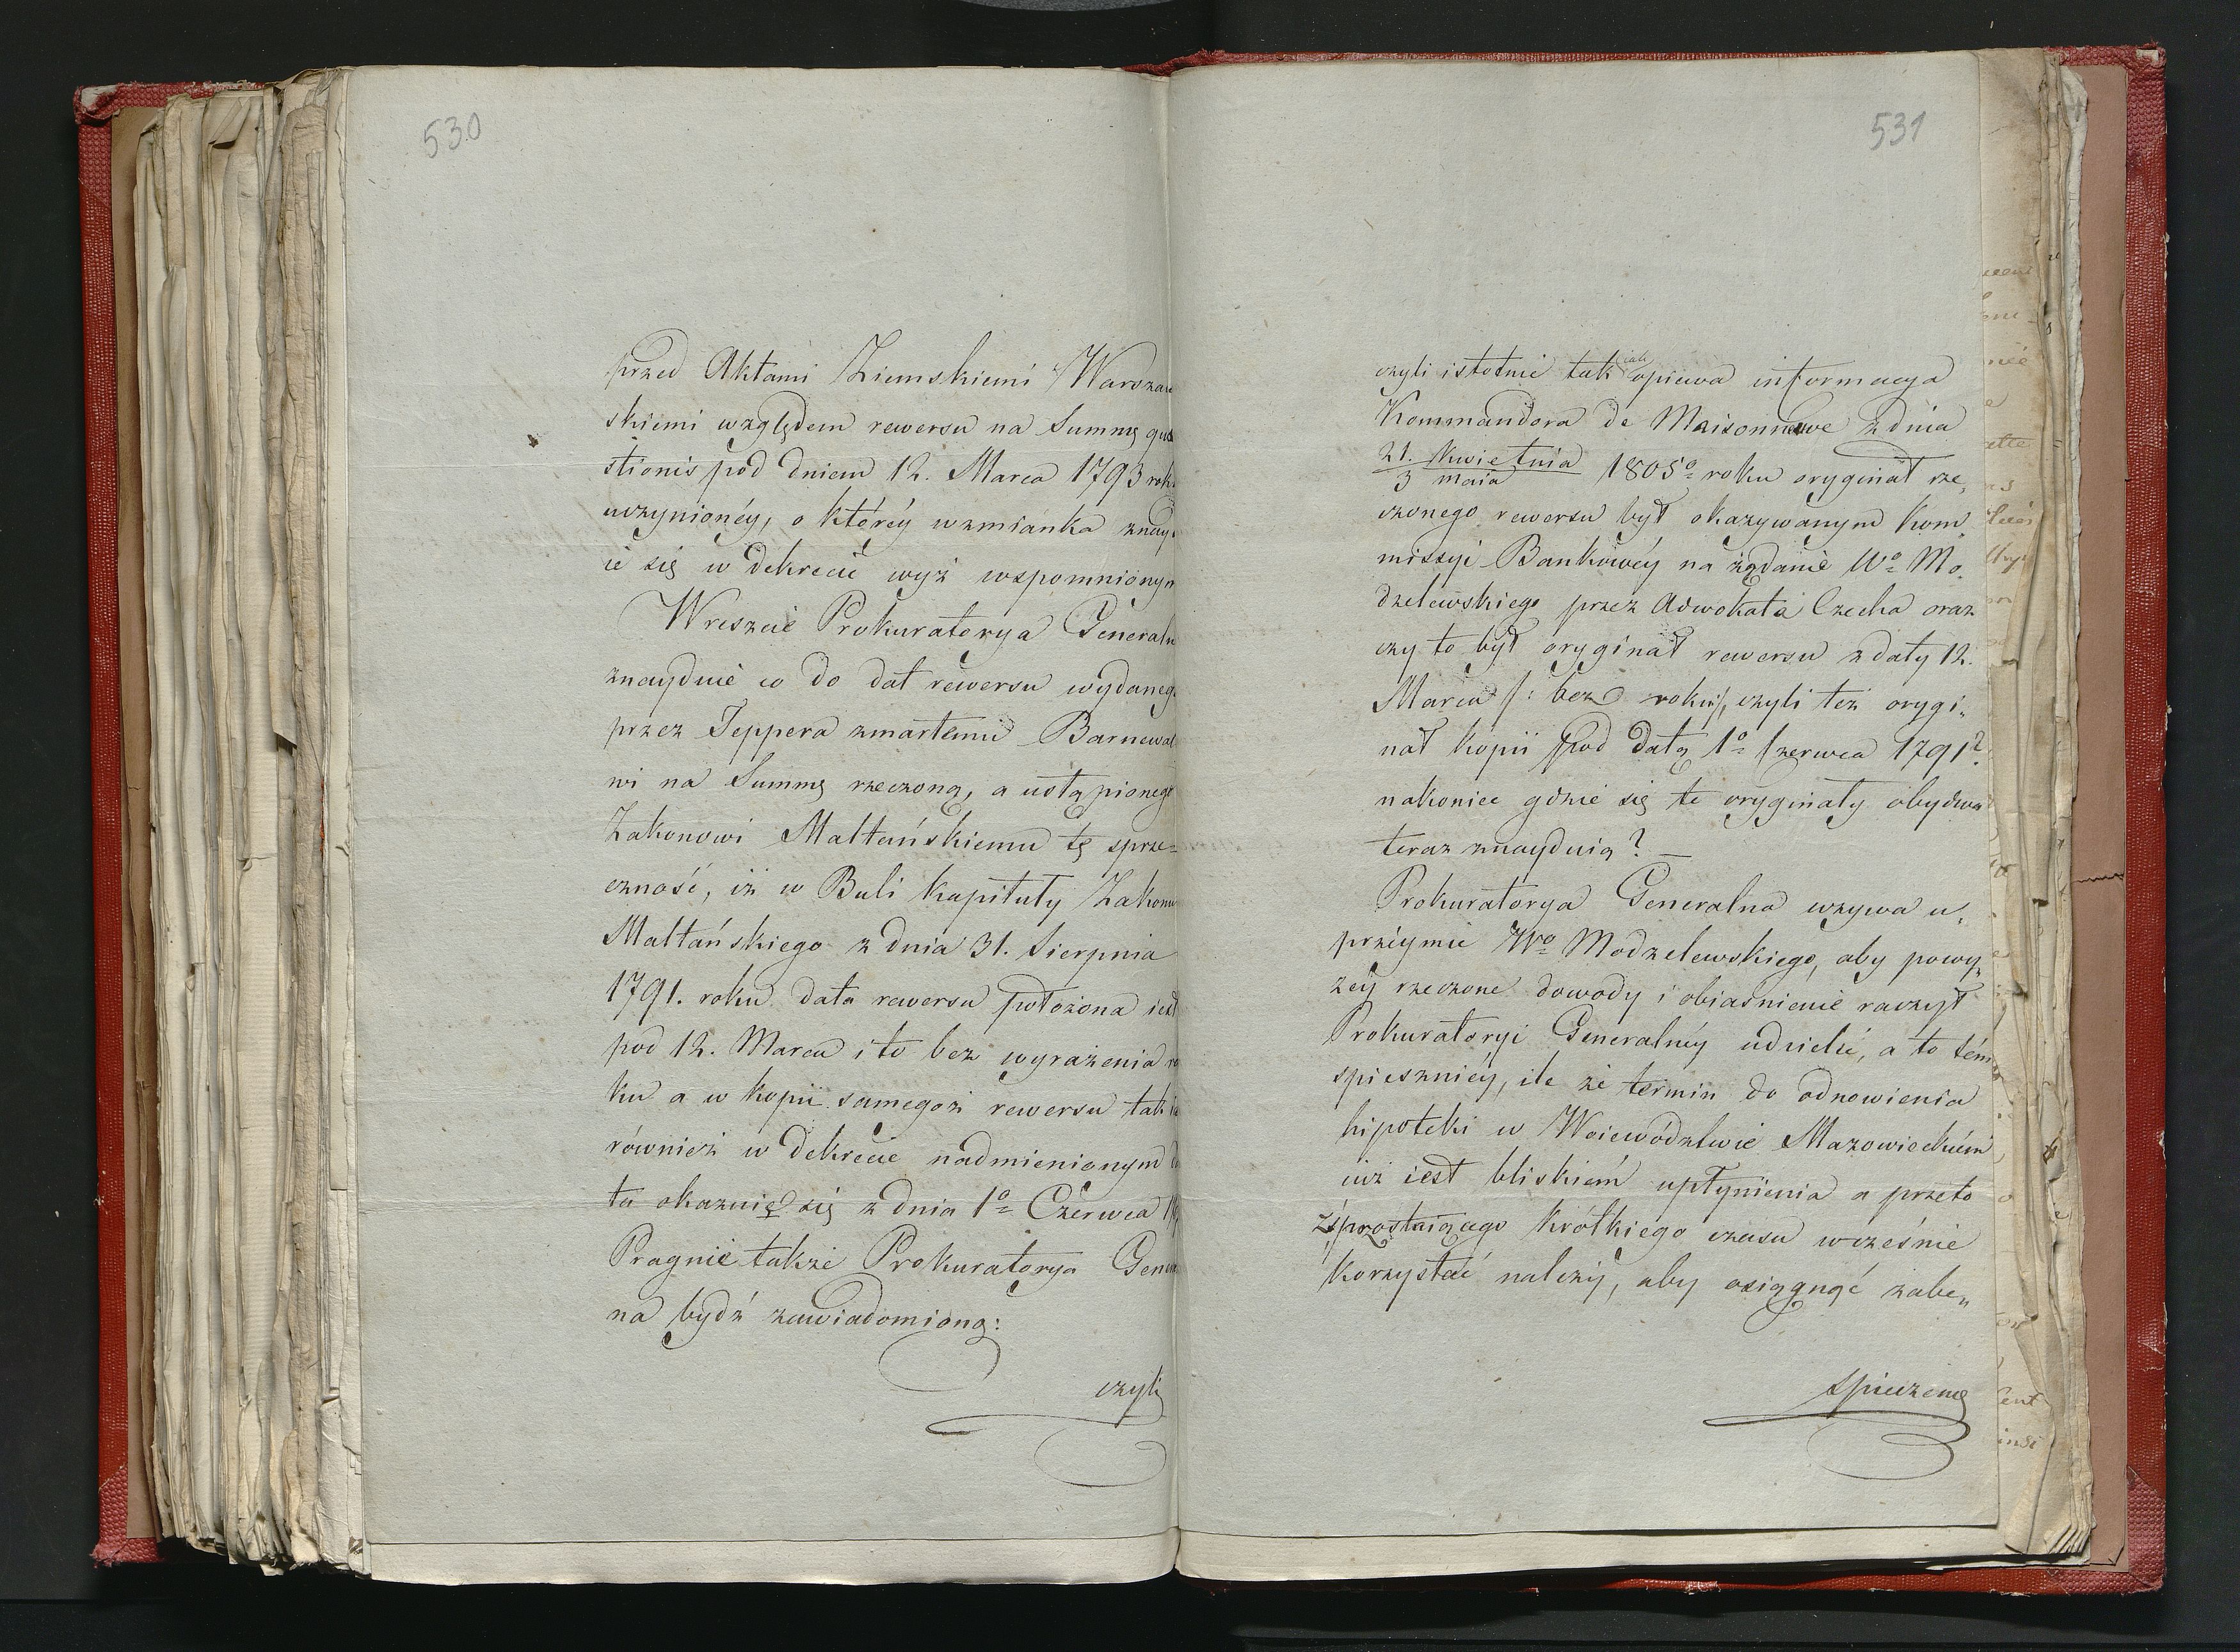 530
przed Aktami Ziemskiemi Warszaw
skiemi względem rewersu na Summę quæ
stionis pod dniem 12. Marca 1793 roku
uczynionéy, o któréy wzmianka znayd
ie się w dekrecie wyż wspomnionym
Wreszcie Prokuratorya General
znayduie co do dat rewersu wydaneg
przez Teppera zmarłemu Barnewal
wi na Summę rzeczoną, a ustąpionego
Zakonowi Maltańskiemu tę sprze=
czność, iż w Buli kapituły Zakonu
Maltańskiego z dnia 31. Sierpnia
1791. roku data rewersu położona iest
pod 12. Marca i to bez wyrażenia ro
ku a w kopii samegoż rewersu tak ia
również w dekrecie nadmienionym da
ta okazuię się z dnia 1º Czerwca 179
Pragnie także Prokuratorya Genera
na bydź zawiadomioną:
czyli
531
czyli istotnie tak iak opiewa informacya
Kommandora de Maisonneuve z dnia
21. kwietnia / 3 maia 1805º roku oryginał rze„
czonego rewersu był okazywanym Kom„
missyi Bankowéy na żądanie Wº Mo„
dzelewskiego przez Adwokata Czecha oraz
czy to był oryginał rewersu z daty 12.
Marca /: bez roku :/, czyli też orygi„
nał kopii pod datą 1º Czerwca 1791?
nakoniec gdzie się te oryginały obydwa
teraz znayduią? —
Prokuratorya Generalna wzywa u„
przéymie Wº Modzelewskiego, aby powy„
żéy rzeczone dowody i obiaśnienie raczył
Prokuratoryi Generalnéy udzielić, a to tém
spieszniéy, ile że termin do odnowienia
hipoteki w Woiewództwie Mazowieckiém
iuż iest bliskiém upłynienia a przeto
krótkiégo czasu wcześnie
korzystać należy, aby osiągnąć zabe„
spieczenie